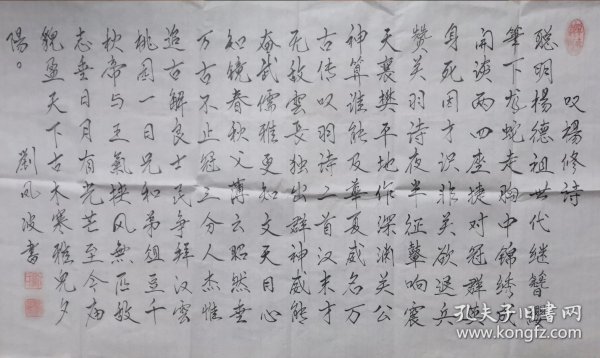 叹楊修诗
聪明楊德祖世代继簪缨
筆下龙蛇走胸中锦绣成
開谈两四座捷对冠群英
身死因才误非关欲退兵
赞关羽诗夜半征鼙响震
天襄樊平地作深渊关公
神算谁能及華夏威名万
古传叹羽诗二首汉末才
无敌雲长独出群神威能
奋武儒雅更知文天日心
如镜春秋义薄云昭然垂
万古不止冠三分人杰惟
追古解良士民争拜汉雲
桃园一日兄和弟俎豆千
秋帝与王氣挟风無匹敌
志垂日月有光芒至今庙
貌盈天下古木寒鸦几夕
陽。
劉风波書
孔夫子旧书网